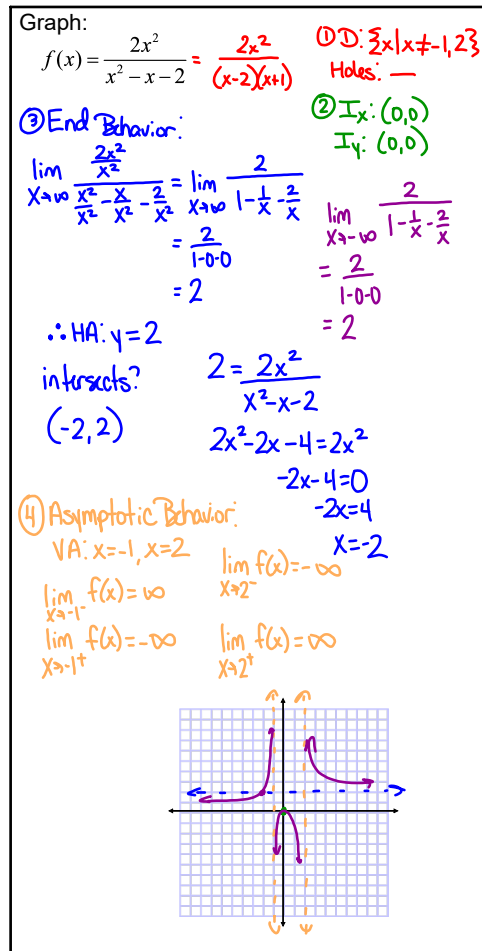 Graph:
f(x) = 2x²/(x² − x − 2) = 2x²/((x-2)(x+1))
① D: {x|x≠-1,2}
Holes: —
② Iₓ: (0,0)
I_y: (0,0)
③ End Behavior:
lim x→∞ (2x²/x²)/(x²/x² - x/x² - 2/x²) = lim x→∞ 2/(1 - 1/x - 2/x)
= 2/(1-0-0)
= 2
lim x→-∞ 2/(1 - 1/x - 2/x)
= 2/(1-0-0)
= 2
∴ HA: y=2
intersects?
(-2,2)
2 = 2x²/(x²-x-2)
2x²-2x-4=2x²
-2x-4=0
-2x=4
x=-2
④ Asymptotic Behavior:
VA: x=-1, x=2
lim x→-1⁻ f(x)=∞
lim x→-1⁺ f(x)=-∞
lim x→2⁻ f(x)=-∞
lim x→2⁺ f(x)=∞